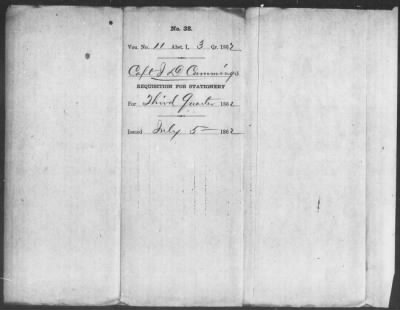 No. 38.
Vou. No. 11 Abst. I, 3 Qr. 1862
Capt J D Cummings
REQUISITION FOR STATIONERY
For Third Quarter 1862
Issued July 5 1862